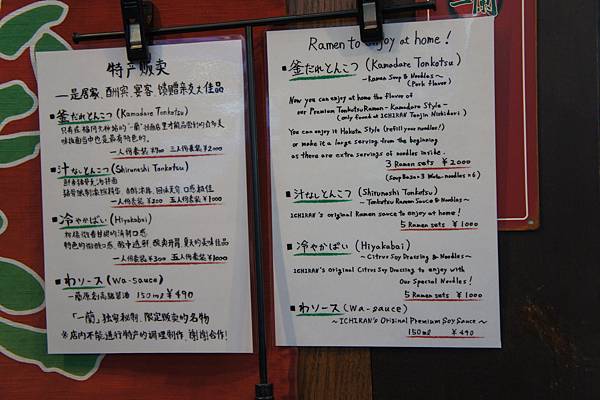 特产贩卖
一是居家、酬宾、宴客、馈赠亲友之佳品
釜だれとんこつ (Kamadare Tonkotsu)
一人份套装 ¥900 三人份套装 ¥2000
汁なしとんこつ (Shirunashi Tonkotsu)
一人份套装 ¥200 五人份套装 ¥1000
冷やかばい (Hiyakabai)
一人份套装 ¥300 五人份套装 ¥1000
わソース (Wa-sauce)
一蘭原创高级酱油 150ml ¥490
「一蘭」独家秘制、限定贩卖的名物
※店内不能进行特产的调理制作、谢谢合作!
一蘭
Ramen to enjoy at home!
釜だれとんこつ (Kamadare Tonkotsu)
~Ramen Soup & Noodles~
(Pork flavor)
Now you can enjoy at home the flavor of
our Premium Tonkotsu Ramen - Kamadare Style -
(only found at ICHIRAN Tenjin Nishidori)
You can enjoy it Hakata Style (refill your noodles!)
or make it a large serving from the beginning
as there are extra servings of noodles inside.
3 Ramen sets ¥2000
(Soup Base×3 Water noodles×6)
汁なしとんこつ (Shirunashi Tonkotsu)
~Tonkotsu Ramen Sauce & Noodles~
ICHIRAN's original Ramen sauce to enjoy at home!
5 Ramen sets ¥1000
冷やかばい (Hiyakabai)
~Citrus Soy Dressing & Noodles~
ICHIRAN'S Original Citrus Soy Dressing to enjoy with
Our Special Noodles!
5 Ramen sets ¥1000
わソース (Wa-sauce)
~ICHIRAN'S Original Premium Soy Sauce~
150ml ¥490